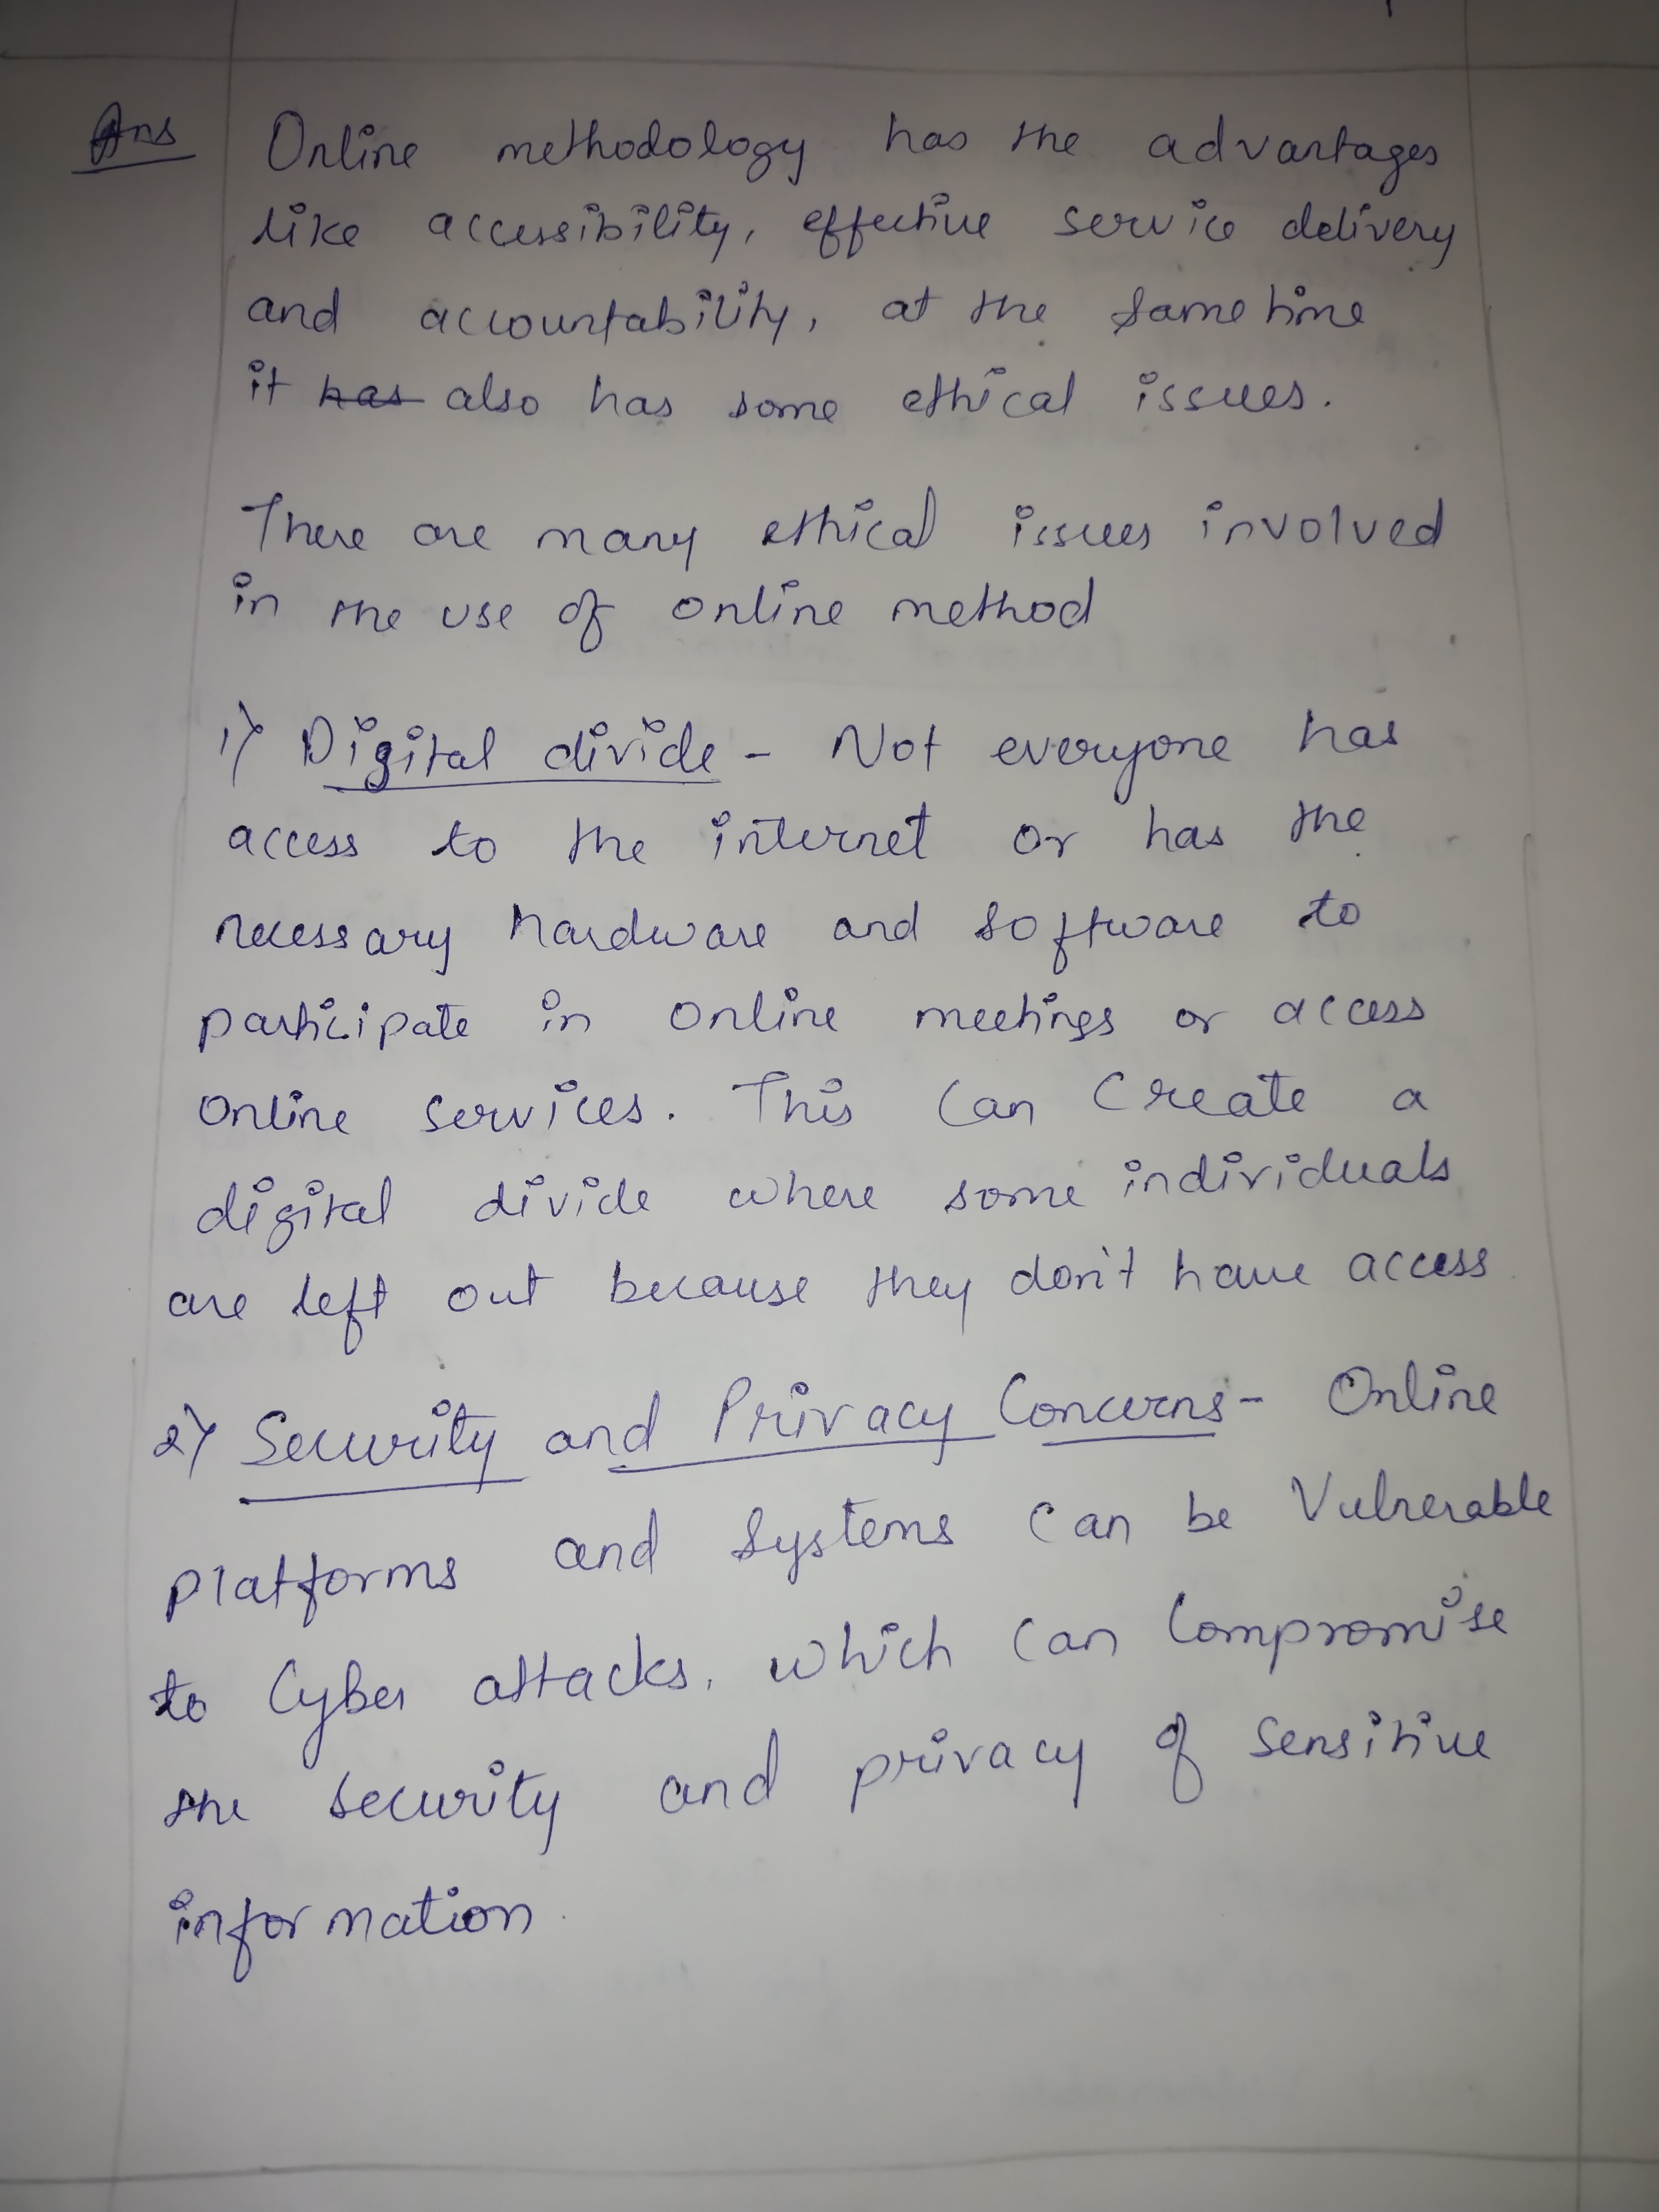 Ans Online methodology has the advantages
like accessibility, effective service delivery
and accountability, at the same time
it has also has some ethical issues.
There are many ethical issues involved
in the use of online method
1) Digital divide - Not everyone has
access to the internet or has the
necessary hardware and software to
participate in online meetings or access
online services. This can create a
digital divide where some individuals
are left out because they don't have access
2) Security and Privacy Concerns - Online
platforms and systems can be Vulnerable
to Cyber attacks, which can Compromise
the security and privacy of sensitive
information.